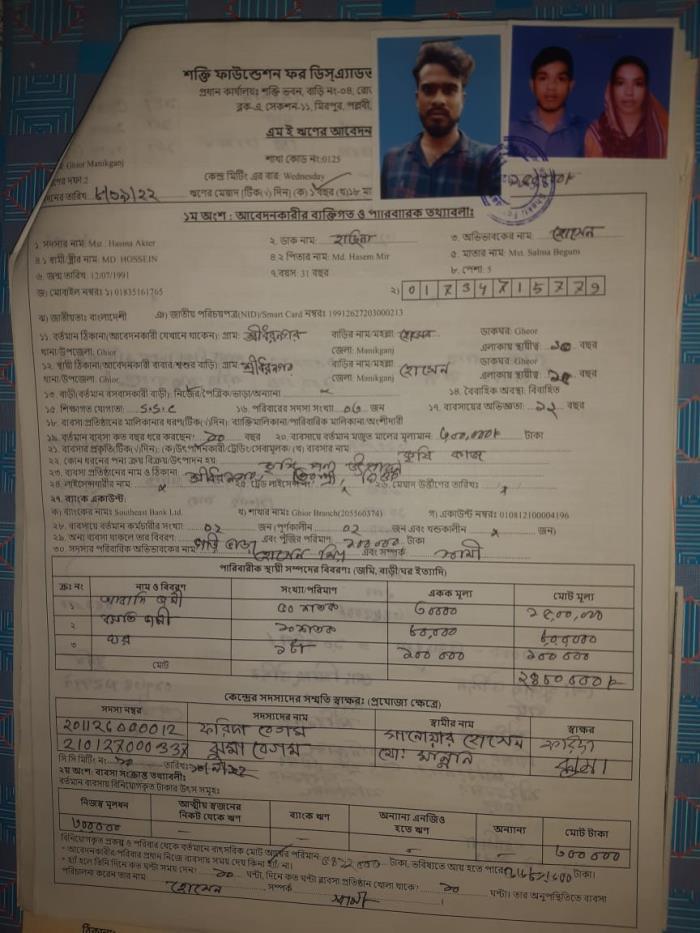 শক্তি ফাউন্ডেশন ফর ডিস্এ্যাডভ
প্রধান কার্যালয়ঃ শক্তি ভবন, বাড়ি নং-০৪, রোড
ব্লক-এ, সেকশন-১১, মিরপুর, পল্লবী,
এম ই ঋণের আবেদন
Ghior Manikganj
শাখা কোড নং:0125
দফা:2
কেন্দ্র মিটিং এর বার: Wednesday
ঋণের মেয়াদ (টিক(√) দিন) (ক)১ বছর (খ)১৮ মা
১ম অংশ : আবেদনকারীর ব্যক্তিগত ও পারিবারিক তথ্যাবলীঃ
১. সদস্যর নাম: Mst . Hasina Akter ২. ডাক নাম: হাছিনা ৩. অভিভাবকের নাম: হোসেন
৪.১ স্বামী/স্ত্রীর নাম: MD HOSSEIN ৪.২ পিতার নাম: Md. Hasem Mir ৫. মাতার নাম: Mst. Salma Begum
৬. জন্ম তারিখ: 12/07/1991 ৭.বয়স: 31 বছর ৮. পেশা: 5
জ) মোবাইল নম্বরঃ ১) 01835161765 ২) 01734715779
ঝ) জাতীয়তাঃ বাংলাদেশী ঞ) জাতীয় পরিচয়পত্র(NID)/Smart Card নম্বরঃ 19912627203000213
১১. বর্তমান ঠিকানা(আবেদনকারী যেখানে থাকেন): গ্রাম: শ্রীধরনগর বাড়ির নাম/মহল্লা: হোসেন ডাকঘর: Gheor
থানা/উপজেলা: Ghior জেলা: Manikganj এলাকায় স্থায়ীত্ব ১০ বছর
১২. স্থায়ী ঠিকানা(আবেদনকারী বাবার/শ্বশুর বাড়ী): গ্রাম: শ্রীধরনগর বাড়ির নাম/মহল্লা: হোসেন ডাকঘর: Gheor
থানা/উপজেলা: Ghior জেলা: Manikganj এলাকায় স্থায়ীত্ব বছর
১৩. বাড়ী(বর্তমান বসবাসকারী বাড়ী): নিজের/পৈত্রিক/ভাড়া/অন্যান্য ১৪. বৈবাহিক অবস্থা: বিবাহিত
১৫. শিক্ষাগত যোগ্যতা: S.S.C ১৬. পরিবারের সদস্য সংখ্যা: জন ১৭. ব্যবসায়ের অভিজ্ঞতাঃ ১২ বছর
১৮. ব্যবসা প্রতিষ্ঠানের মালিকানার ধরণ(টিক(√)দিন): ব্যক্তিমালিকানা/পারিবারিক মালিকানা/অংশীদারী
১৯. বর্তমান ব্যবসা কত বছর ধরে করছেন? ১০ বছর ২০. ব্যবসায়ে বর্তমান মজুত মালের মূল্যমান টাকা
২১. ব্যবসার প্রকৃতি(টিক(√)দিন): (ক)উৎপাদনকারী/ট্রেডিং/সেবামূলক (খ) ব্যবসার নাম কৃষি কাজ
২২. কোন ধরনের পণ্য ক্রয় বিক্রয়/উৎপাদন হয়
২৩. ব্যবসা প্রতিষ্ঠানের নাম ও ঠিকানা: শ্রীধরনগর
২৪. লাইসেন্সধারীর নাম ২৫. ট্রেড লাইসেন্স নং ২৬. মেয়াদ উত্তীর্ণের তারিখঃ
২৭. ব্যাংক একাউন্ট:
ক) ব্যাংকের নামঃ Southeast Bank Ltd. খ) শাখার নামঃ Ghior Branch(205560374) গ) একাউন্ট নম্বরঃ 010812100004196
২৮. ব্যবসায়ে বর্তমান কর্মচারীর সংখ্যা: ০২ জন (পূর্ণকালীন ০২ জন এবং খন্ডকালীন জন)
২৯. অন্য ব্যবসা থাকলে তার বিবরণ এবং পুঁজির পরিমাণ ২০০০০০ টাকা
৩০. সদস্যর পারিবারিক অভিভাবকের নাম হোসেন এবং সম্পর্ক স্বামী
পারিবারীক স্থায়ী সম্পদের বিবরণ: (জমি, বাড়ী/ঘর ইত্যাদি)
ক্রঃ নং নাম ও বিবরণ সংখ্যা/পরিমাণ একক মূল্য মোট মূল্য
১ আবাদি জমী ৫০ শতক
২ বসতি জমী ১০ শতক ৮০,০০০
৩ ঘর ১টা ২০০ ০০০ ২০০ ০০০
মোট
কেন্দ্রের সদস্যদের সম্মতি স্বাক্ষর: (প্রযোজ্য ক্ষেত্রে)
সদস্য নম্বর সদস্যদের নাম স্বামীর নাম স্বাক্ষর
201126000012 ফরিদা বেগম হোসেন ফরিদা
210127000337 ঝুমা বেগম মোঃ মান্নান ঝুমা
সি সি মিটিং নং: তারিখঃ
২য় অংশ: ব্যবসা সংক্রান্ত তথ্যাবলী:
বর্তমান ব্যবসায় বিনিয়োগকৃত টাকার উৎস সমূহঃ
নিজস্ব মূলধন আত্মীয় স্বজনের নিকট থেকে ঋণ ব্যাংক ঋণ অন্যান্য এনজিও হতে ঋণ অন্যান্য মোট টাকা
৩০০০০০ – – – – ৩০০ ০০০
বিনিয়োগকৃত প্রকল্প ও পরিবার থেকে বর্তমানে বাৎসরিক মোট আয়ের পরিমান টাকা, ভবিষ্যতে আয় হতে পারে টাকা।
* আবেদনকারীর পরিবার প্রধান নিজে ব্যবসায় সময় দেয় কিনা হ্যাঁ/ না।
* হ্যাঁ হলে তিনি দিনে কত ঘন্টা সময় দেন? ১০ ঘন্টা, দিনে কত ঘন্টা ব্যবসা প্রতিষ্ঠান খোলা থাকে? ১০ ঘন্টা। তার অনুপস্থিতিতে ব্যবসা
পরিচালনা করেন তার নাম হোসেন সম্পর্ক স্বামী ।